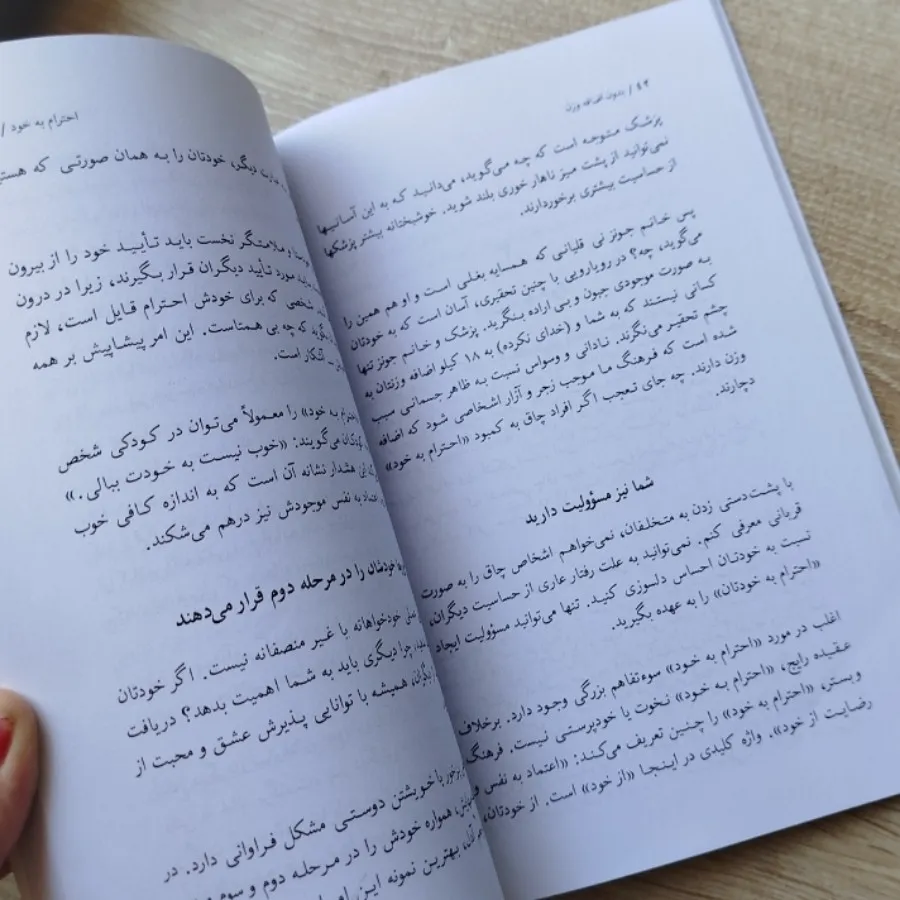 ۴۲ / بدون اضافه وزن
پزشک متوجه است که چه می‌گوید، می‌دانید که به این آسانیها
نمی‌توانید از پشت میز ناهار خوری بلند شوید. خوشبختانه بیشتر پزشکها
از حساسیت بیشتری برخوردارند.
پس خانم جونز نی قلیانی که همسایه بغلی است و او هم همین را
می‌گوید، چه؟ در رویارویی با چنین تحقیری، آسان است که به خودتان
به صورت موجودی جبون و بی اراده بنگرید. پزشک و خانم جونز تنها
کسانی نیستند که به شما و (خدای نکرده) به ۱۸ کیلو اضافه وزنتان به
چشم تحقیر می‌نگرند. نادانی و وسواس نسبت به ظاهر جسمانی سبب
شده است که فرهنگ ما موجب زجر و آزار اشخاصی شود که اضافه
وزن دارند. چه جای تعجب اگر افراد چاق به کمبود «احترام به خود»
دچارند.
شما نیز مسؤولیت دارید
با پشت‌دستی زدن به متخلفان، نمی‌خواهم اشخاص چاق را به صورت
قربانی معرفی کنم. نمی‌توانید به علت رفتار عاری از حساسیت دیگران،
نسبت به خودتان احساس دلسوزی کنید. تنها می‌توانید مسؤولیت ایجاد
«احترام به خودتان» را به عهده بگیرید.
اغلب در مورد «احترام به خود» سوءتفاهم بزرگی وجود دارد. برخلاف
عقیده رایج، «احترام به خود» نخوت یا خودپرستی نیست. فرهنگ
وبستر، «احترام به خود» را چنین تعریف می‌کند: «اعتماد به نفس و
رضایت از خود». واژه کلیدی در اینجا «از خود» است. از خودتان،
احترام به خود /
دیگر، خودتان را به همان صورتی که
و ملامتگر نخست باید تأیید خود را از بیرون
مورد تأیید دیگران قرار بگیرند، زیرا در درون
شخصی که برای خودش احترام قایل است، لازم
بگوید که چه بی همتاست. این امر پیشاپیش بر همه
آشکار است.
به خود» را معمولاً می‌توان در کودکی شخص
می‌گویند: «خوب نیست به خودت ببالی.»
هشدار نشانه آن است که به اندازه کافی خوب
اعتماد به نفس موجودش نیز درهم می‌شکند.
خودشان را در مرحله دوم قرار می‌دهند
خودخواهانه یا غیر منصفانه نیست. اگر خودتان
چرا دیگری باید به شما اهمیت بدهد؟ دریافت
همیشه با توانایی پذیرش عشق و محبت از
برخورد با خویشتن دوستی مشکل فراوانی دارد. در
همواره خودش را در مرحله دوم و سوم
آن، بهترین نمونه این